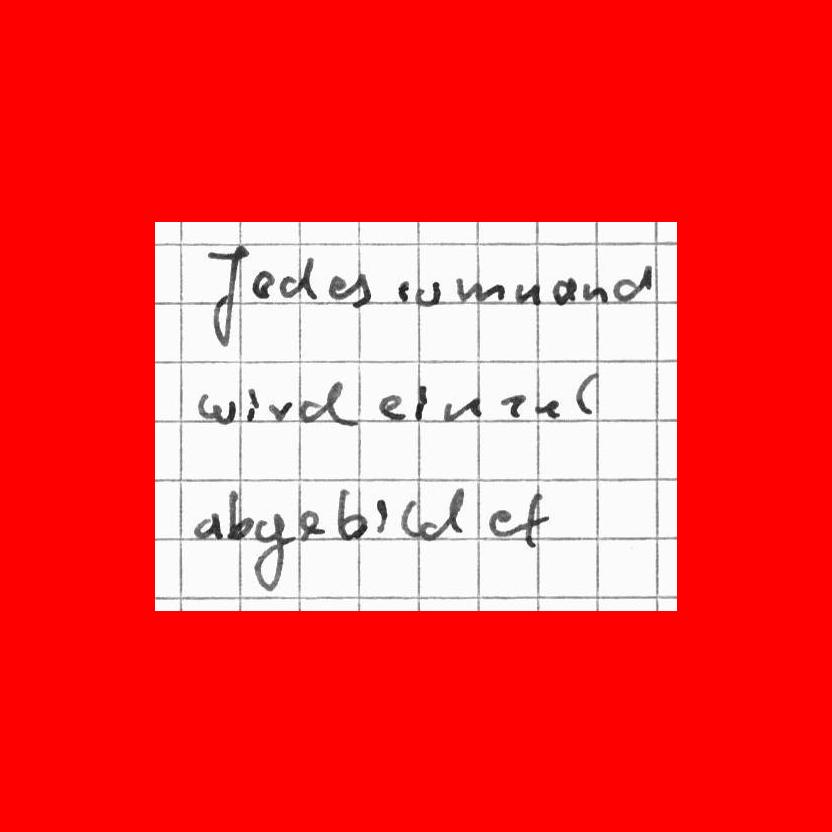 Jedes command
wird einzel
abgebildet